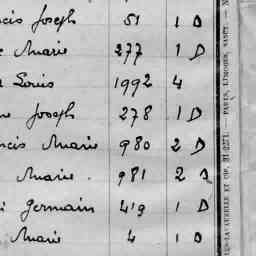 cis Joseph 51 1 D
Marie 277 1 D
Louis 1992 4
Joseph 278 1 D
ncis Marie 980 2 D
Marie . 981 2 D
Germain 419 1 D
Marie 4 1 D
PARIS, LIMOGES, NANCY.